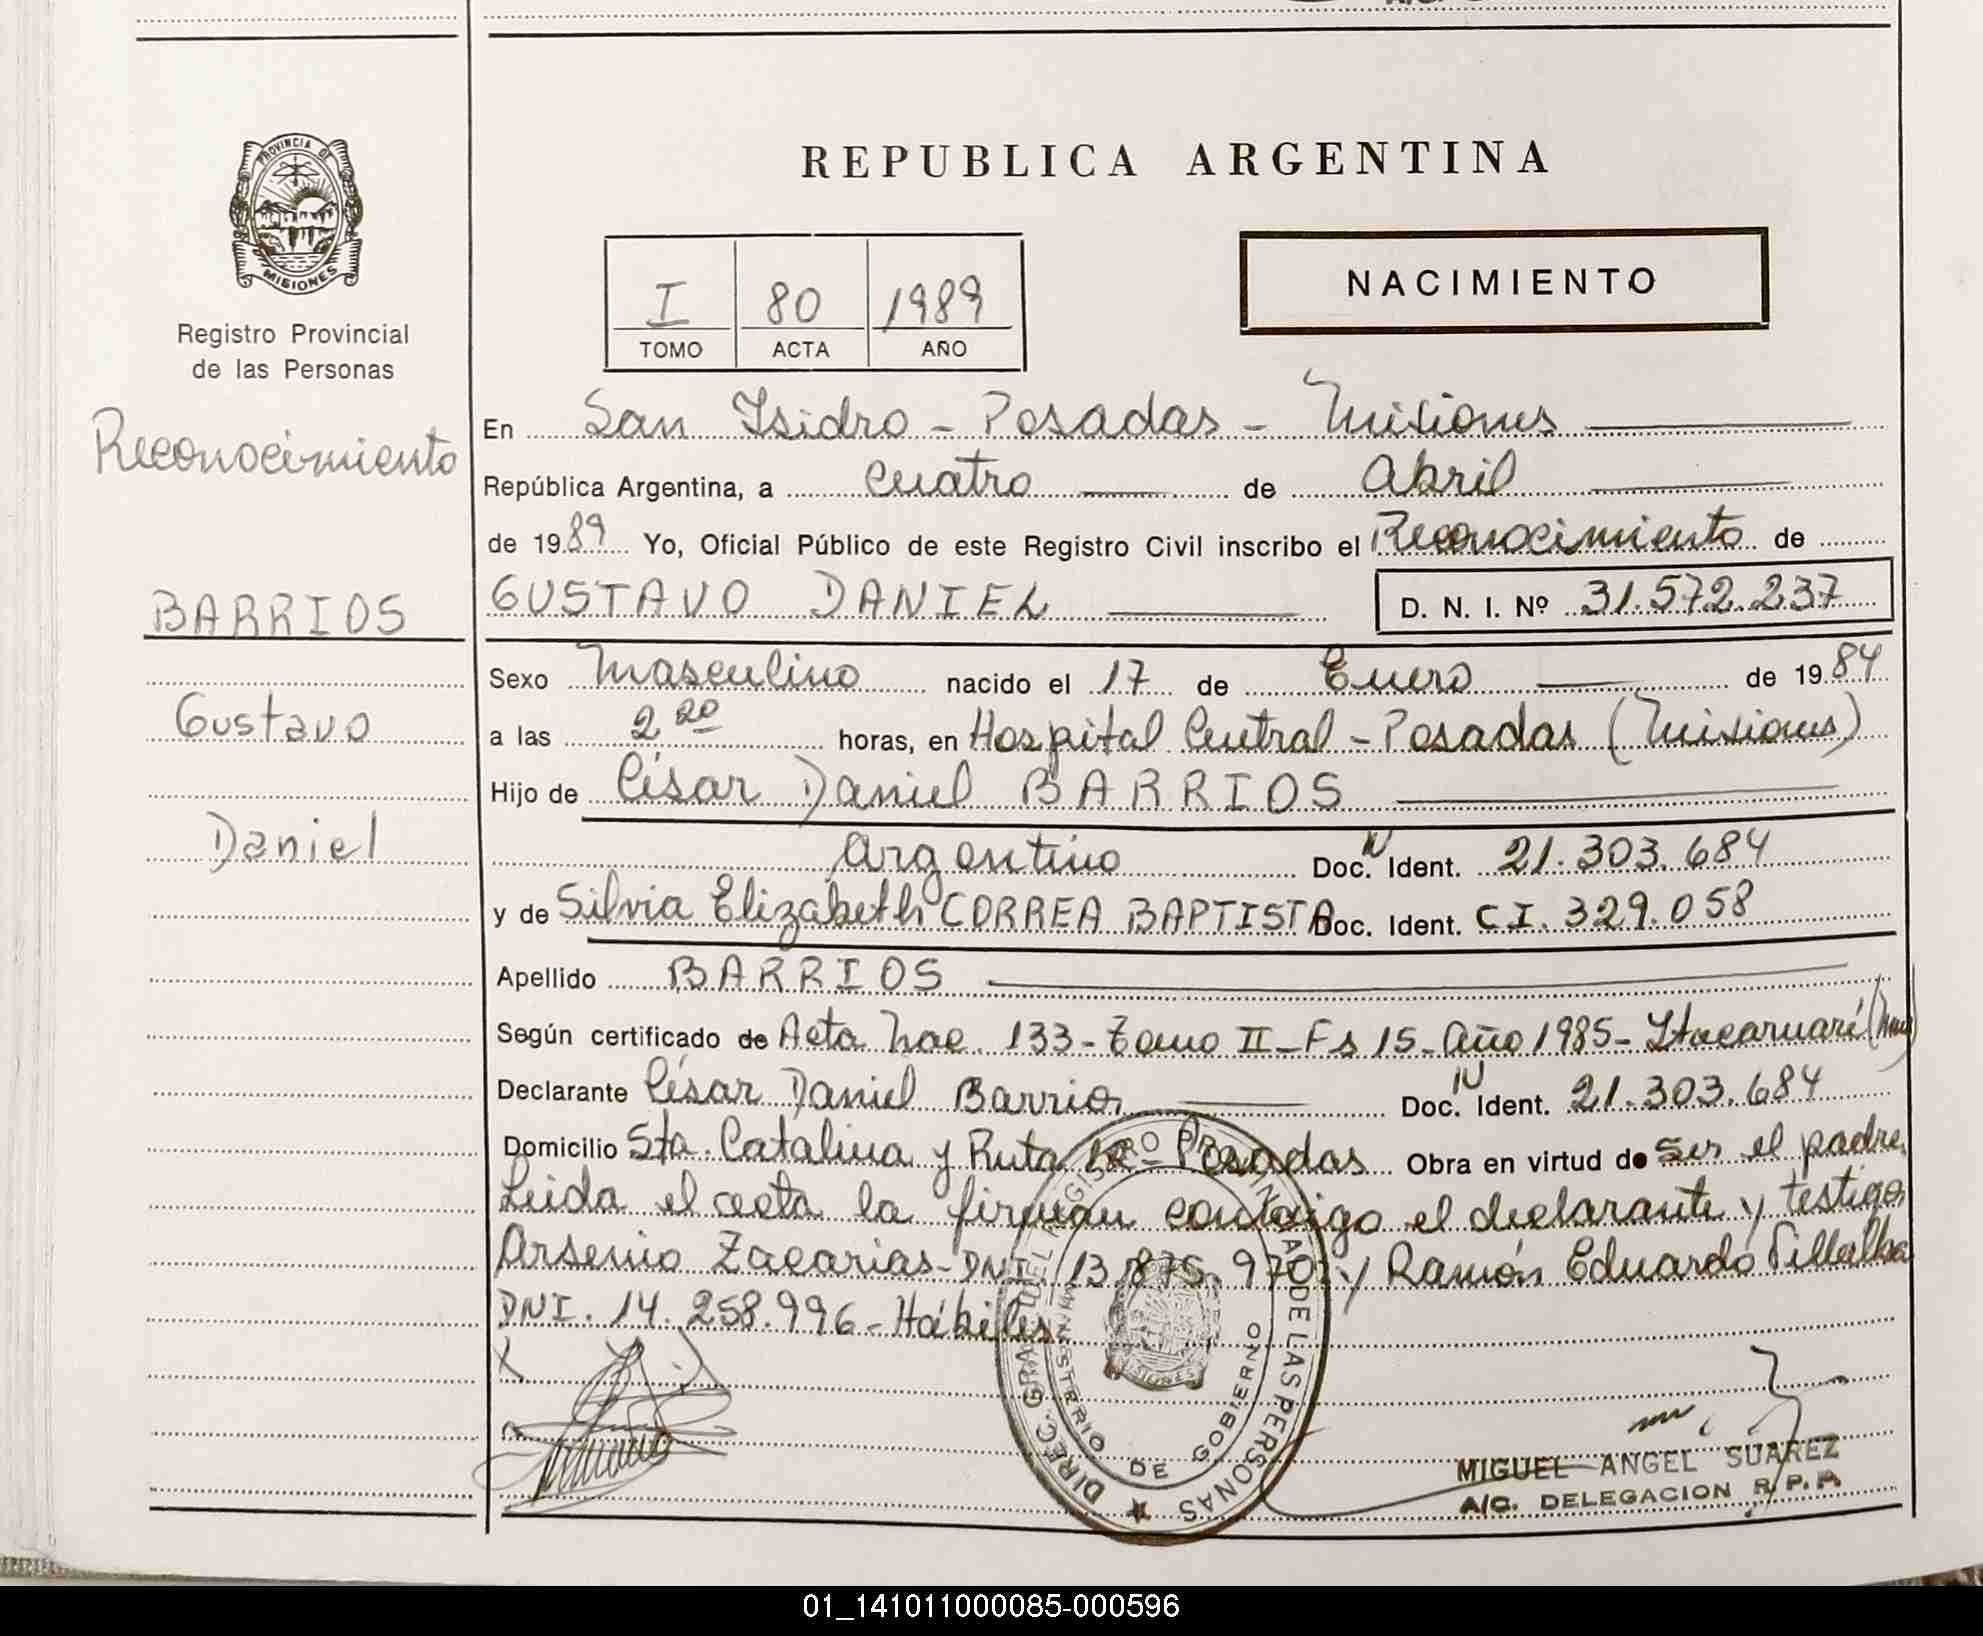 PROVINCIA DE
MISIONES
Registro Provincial
de las Personas
Reconocimiento
BARRIOS
Gustavo
Daniel
REPUBLICA ARGENTINA
I 80 1989
TOMO ACTA AÑO
NACIMIENTO
En San Isidro - Posadas - Misiones
República Argentina, a cuatro de Abril
de 1989 Yo, Oficial Público de este Registro Civil inscribo el Reconocimiento de
GUSTAVO DANIEL D. N. I. Nº 31.572.237
Sexo Masculino nacido el 17 de Enero de 1984
a las 2 20 horas, en Hospital Central - Posadas (Misiones)
Hijo de César Daniel BARRIOS
Argentino Doc. Ident. 21.303.684
y de Silvia Elizabeth CORREA BAPTISTA Doc. Ident. C I. 329.058
Apellido BARRIOS
Según certificado de Acta Nac. 133 - Tomo II - Fs 15 - Año 1985 - Itacaruaré
Declarante César Daniel Barrios Doc. Ident. 21.303.684
Domicilio Sta. Catalina y Ruta 12 - Posadas Obra en virtud de ser el padre.
Leida el acta la firman conmigo el declarante y testigos
Arsenio Zacarias - DNI. 13.875.970 y Ramón Eduardo Villalba
DNI. 14.258.996 - Hábiles
DIREC. GRAL. DEL REGISTRO PROVINCIAL DE LAS PERSONAS
MINISTERIO DE GOBIERNO
MISIONES
MIGUEL ANGEL SUAREZ
A/C. DELEGACION R. P. P.
01_141011000085-000596